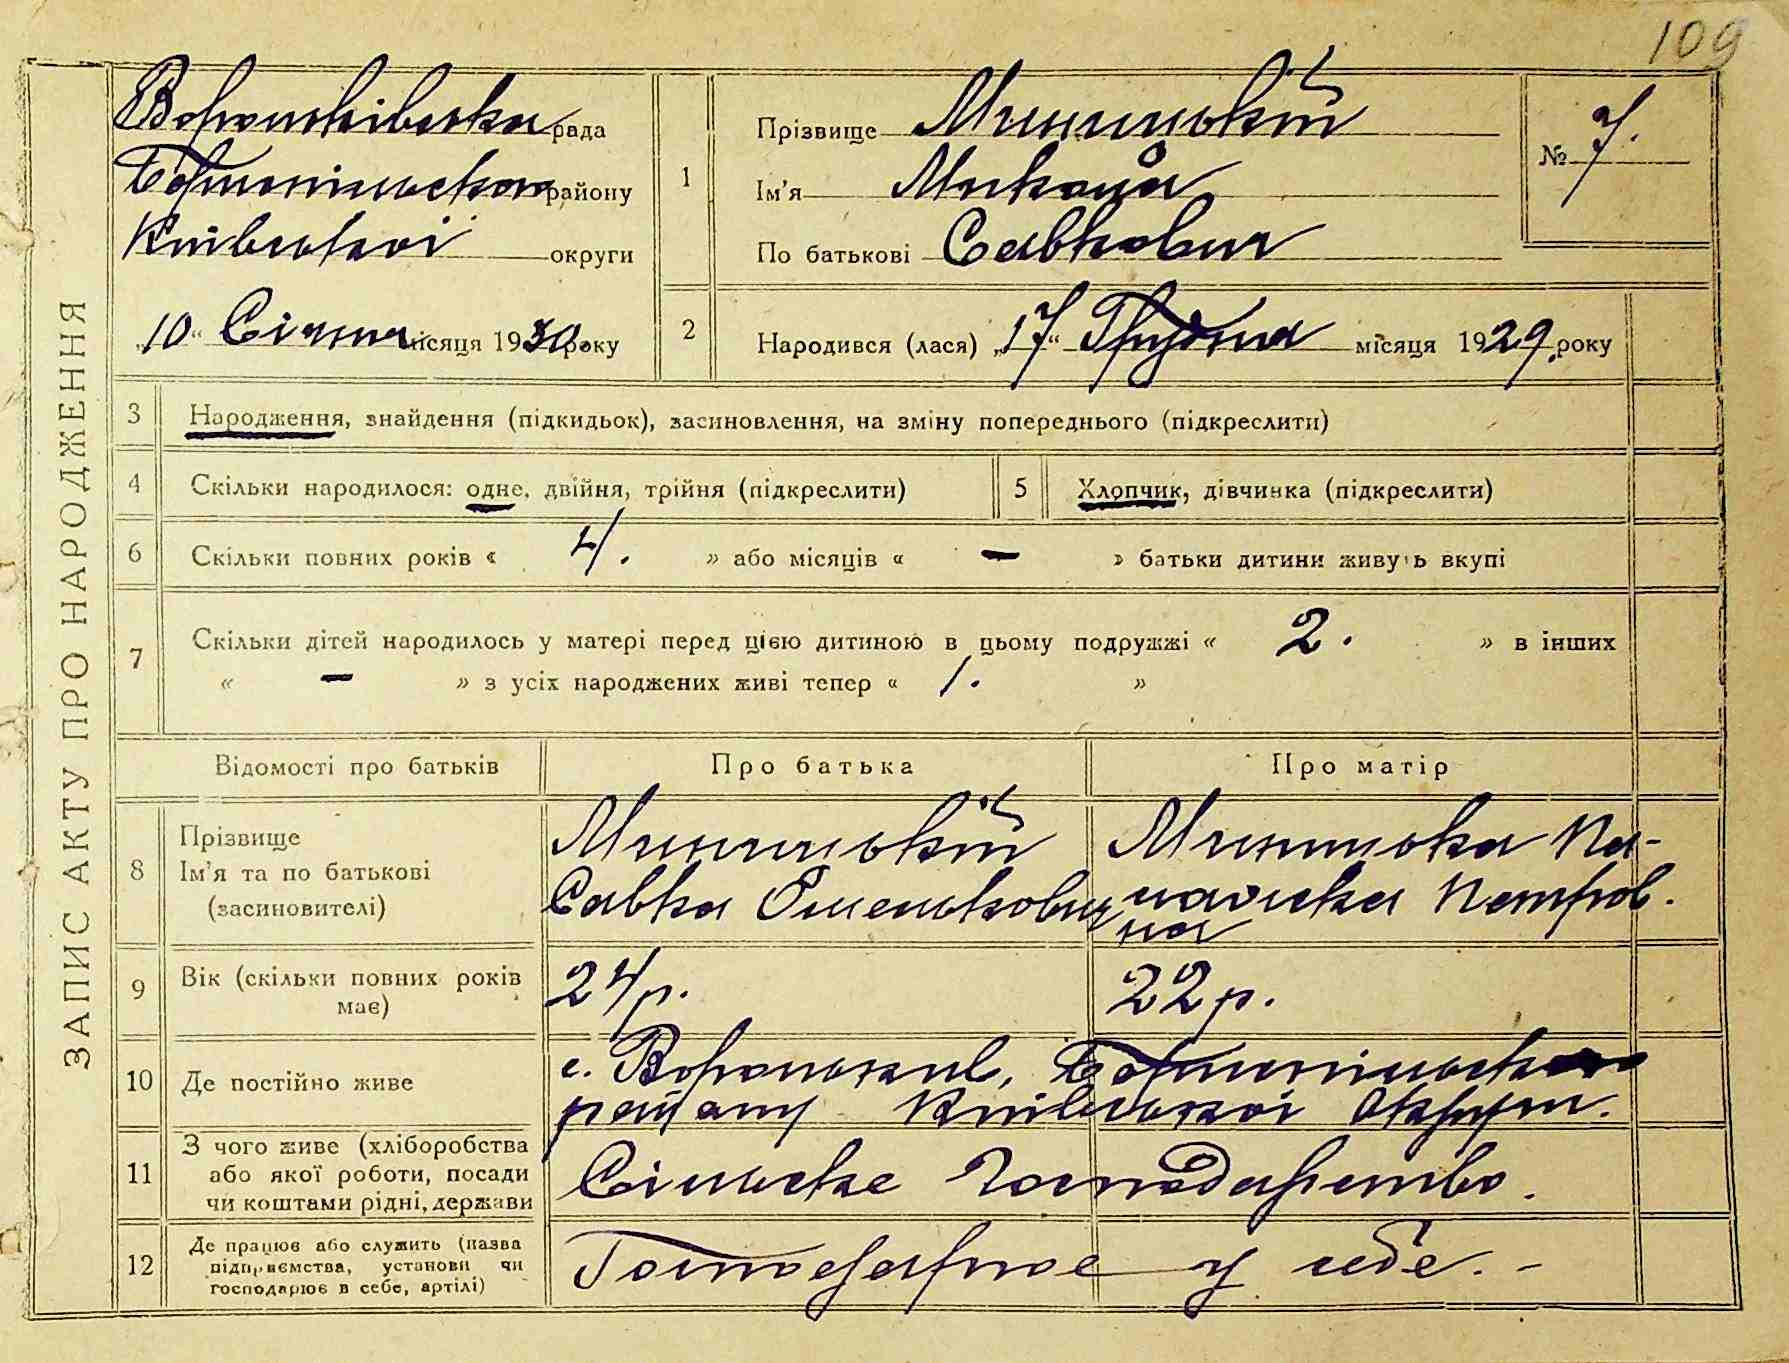 109
ЗАПИС АКТУ ПРО НАРОДЖЕННЯ
Вороньківська рада
Бориспільського району
Київської округи
„10“ Січня місяця 1930 року
1 Прізвище Миницький
Ім'я Микола
По батькові Савкович
№ 7.
2 Народився (лася) „17“ Грудня місяця 1929. року
3 Народження, знайдення (підкидьок), засиновлення, на зміну попереднього (підкреслити)
4 Скільки народилося: одне, двійня, трійня (підкреслити)
5 Хлопчик, дівчинка (підкреслити)
6 Скільки повних років « 4. » або місяців « — » батьки дитини живуть вкупі
7 Скільки дітей народилось у матері перед цією дитиною в цьому подружжі « 2. » в інших
« — » з усіх народжених живі тепер « 1. »
Відомості про батьків Про батька Про матір
8 Прізвище
Ім'я та по батькові
(засиновителі)
Миницький
Савка Омелькович
Миницька Па-
лажка Петров-
на
9 Вік (скільки повних років
має)
24 р.
22 р.
10 Де постійно живе
с. Вороньків, Бориспільського
району Київської Округи.
11 З чого живе (хліборобства
або якої роботи, посади
чи коштами рідні, держави
Сільське Господарство.
12 Де працює або служить (назва
підприємства, установи чи
господарює в себе, артілі)
Господарює у себе. –